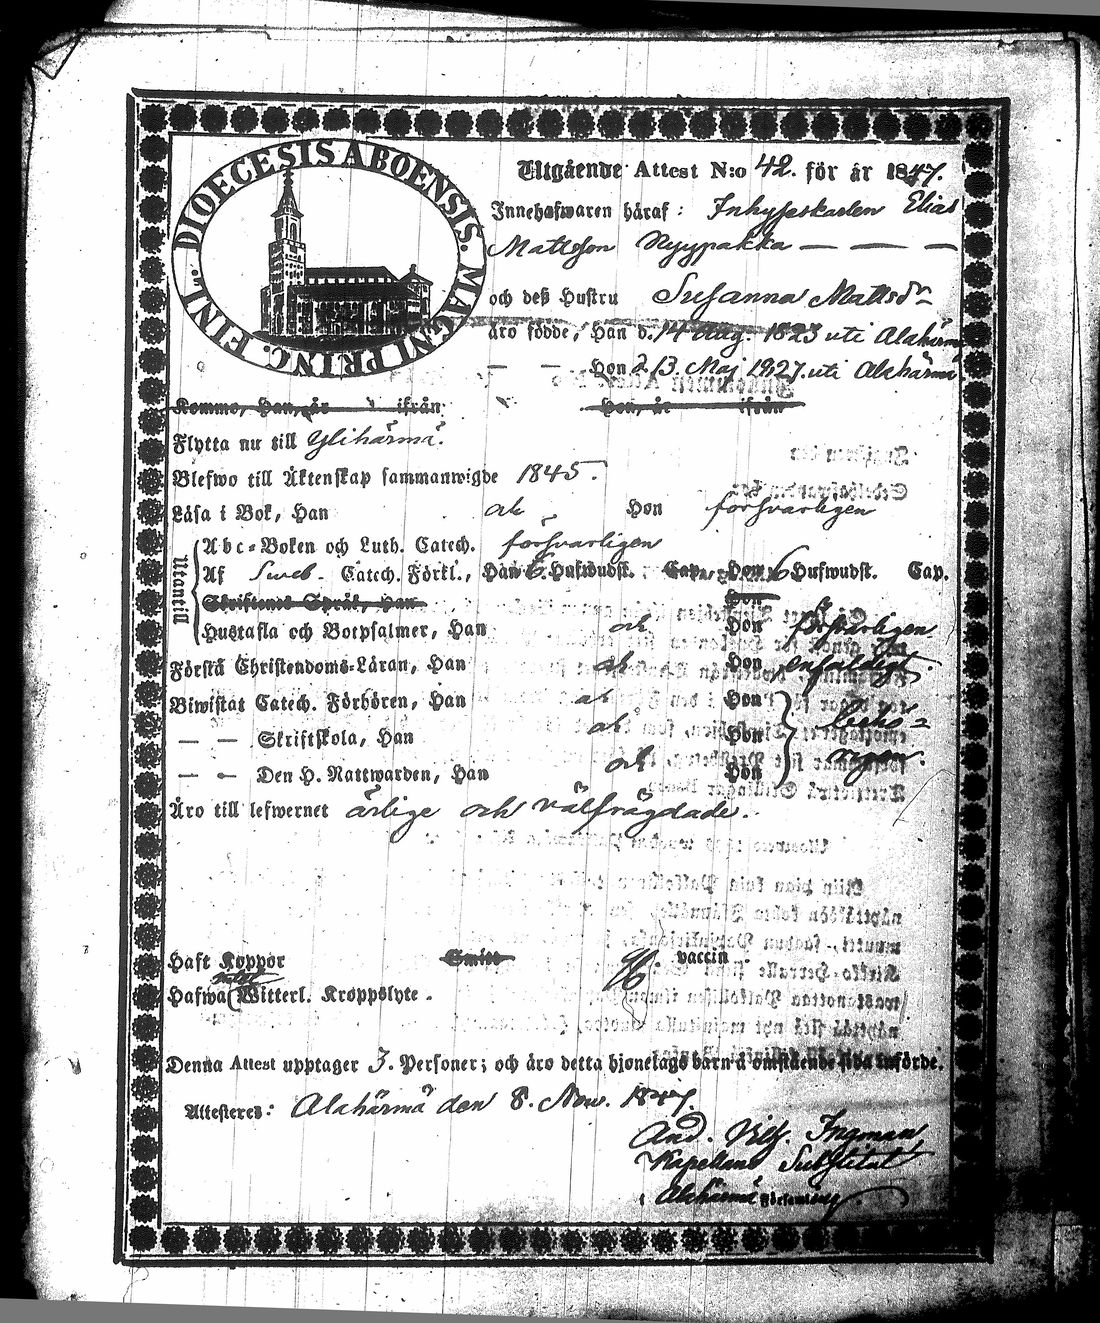 DIOECESIS ABOENSIS. MAGNI PRINC. FINL.
Utgående Attest N:o 42. för år 1847.
Innehafwaren häraf: Inhyseskarlen Elias
Mattsson Nyypakka — — —
och deß Hustru Susanna Mattsdr
äro födde, Han d. 14 Aug. 1823 uti Alahärmä
— — Hon d. 13. Maj 1827. uti Alahärmä.
Komme, Han, år ifrån Hon, år ifrån
Flytta nu till Ylihärmä.
Blefwo till Äktenskap sammanwigde 1845.
Läsa i Bok, Han och Hon försvarligen
Utantill
Abc-Boken och Luth. Catech. försvarligen
Af Sveb. Catech. Förkl., Han 6. Hufwudst. Cap., Hon 6 Hufwudst. Cap.
Skriftenes Språk, Han Hon
Hustafla och Botpsalmer, Han och Hon försvarligen
Förstå Christendoms-Läran, Han och Hon enfaldigt.
Biwistat Catech. Förhören, Han och Hon
— — Skriftskola, Han och Hon behö-
— — Den H. Nattwarden, Han och Hon rigen.
Äro till lefwernet ärlige och välfrägdade.
Haft Koppor Smitt vaccin.
Hafwa Witterl. Kroppslyte.
Denna Attest upptager 3. Personer; och äro detta hjonelags barn å omstående sida införde.
Attesteres: Alahärmä den 8. Nov. 1847.
And. Vilh. Ingman
Kapellans Substitut
i Alahärmä Församling